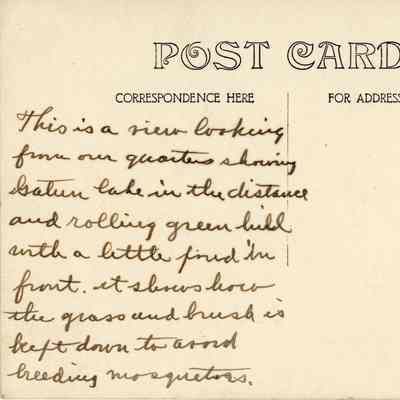 POST CARD
CORRESPONDENCE HERE FOR ADDRESS
This is a view looking
from our quarters showing
Gatun lake in the distance
and rolling green hill
with a little pond in
front. it shows how
the grass and brush is
kept down to avoid
breeding mosquetoes.